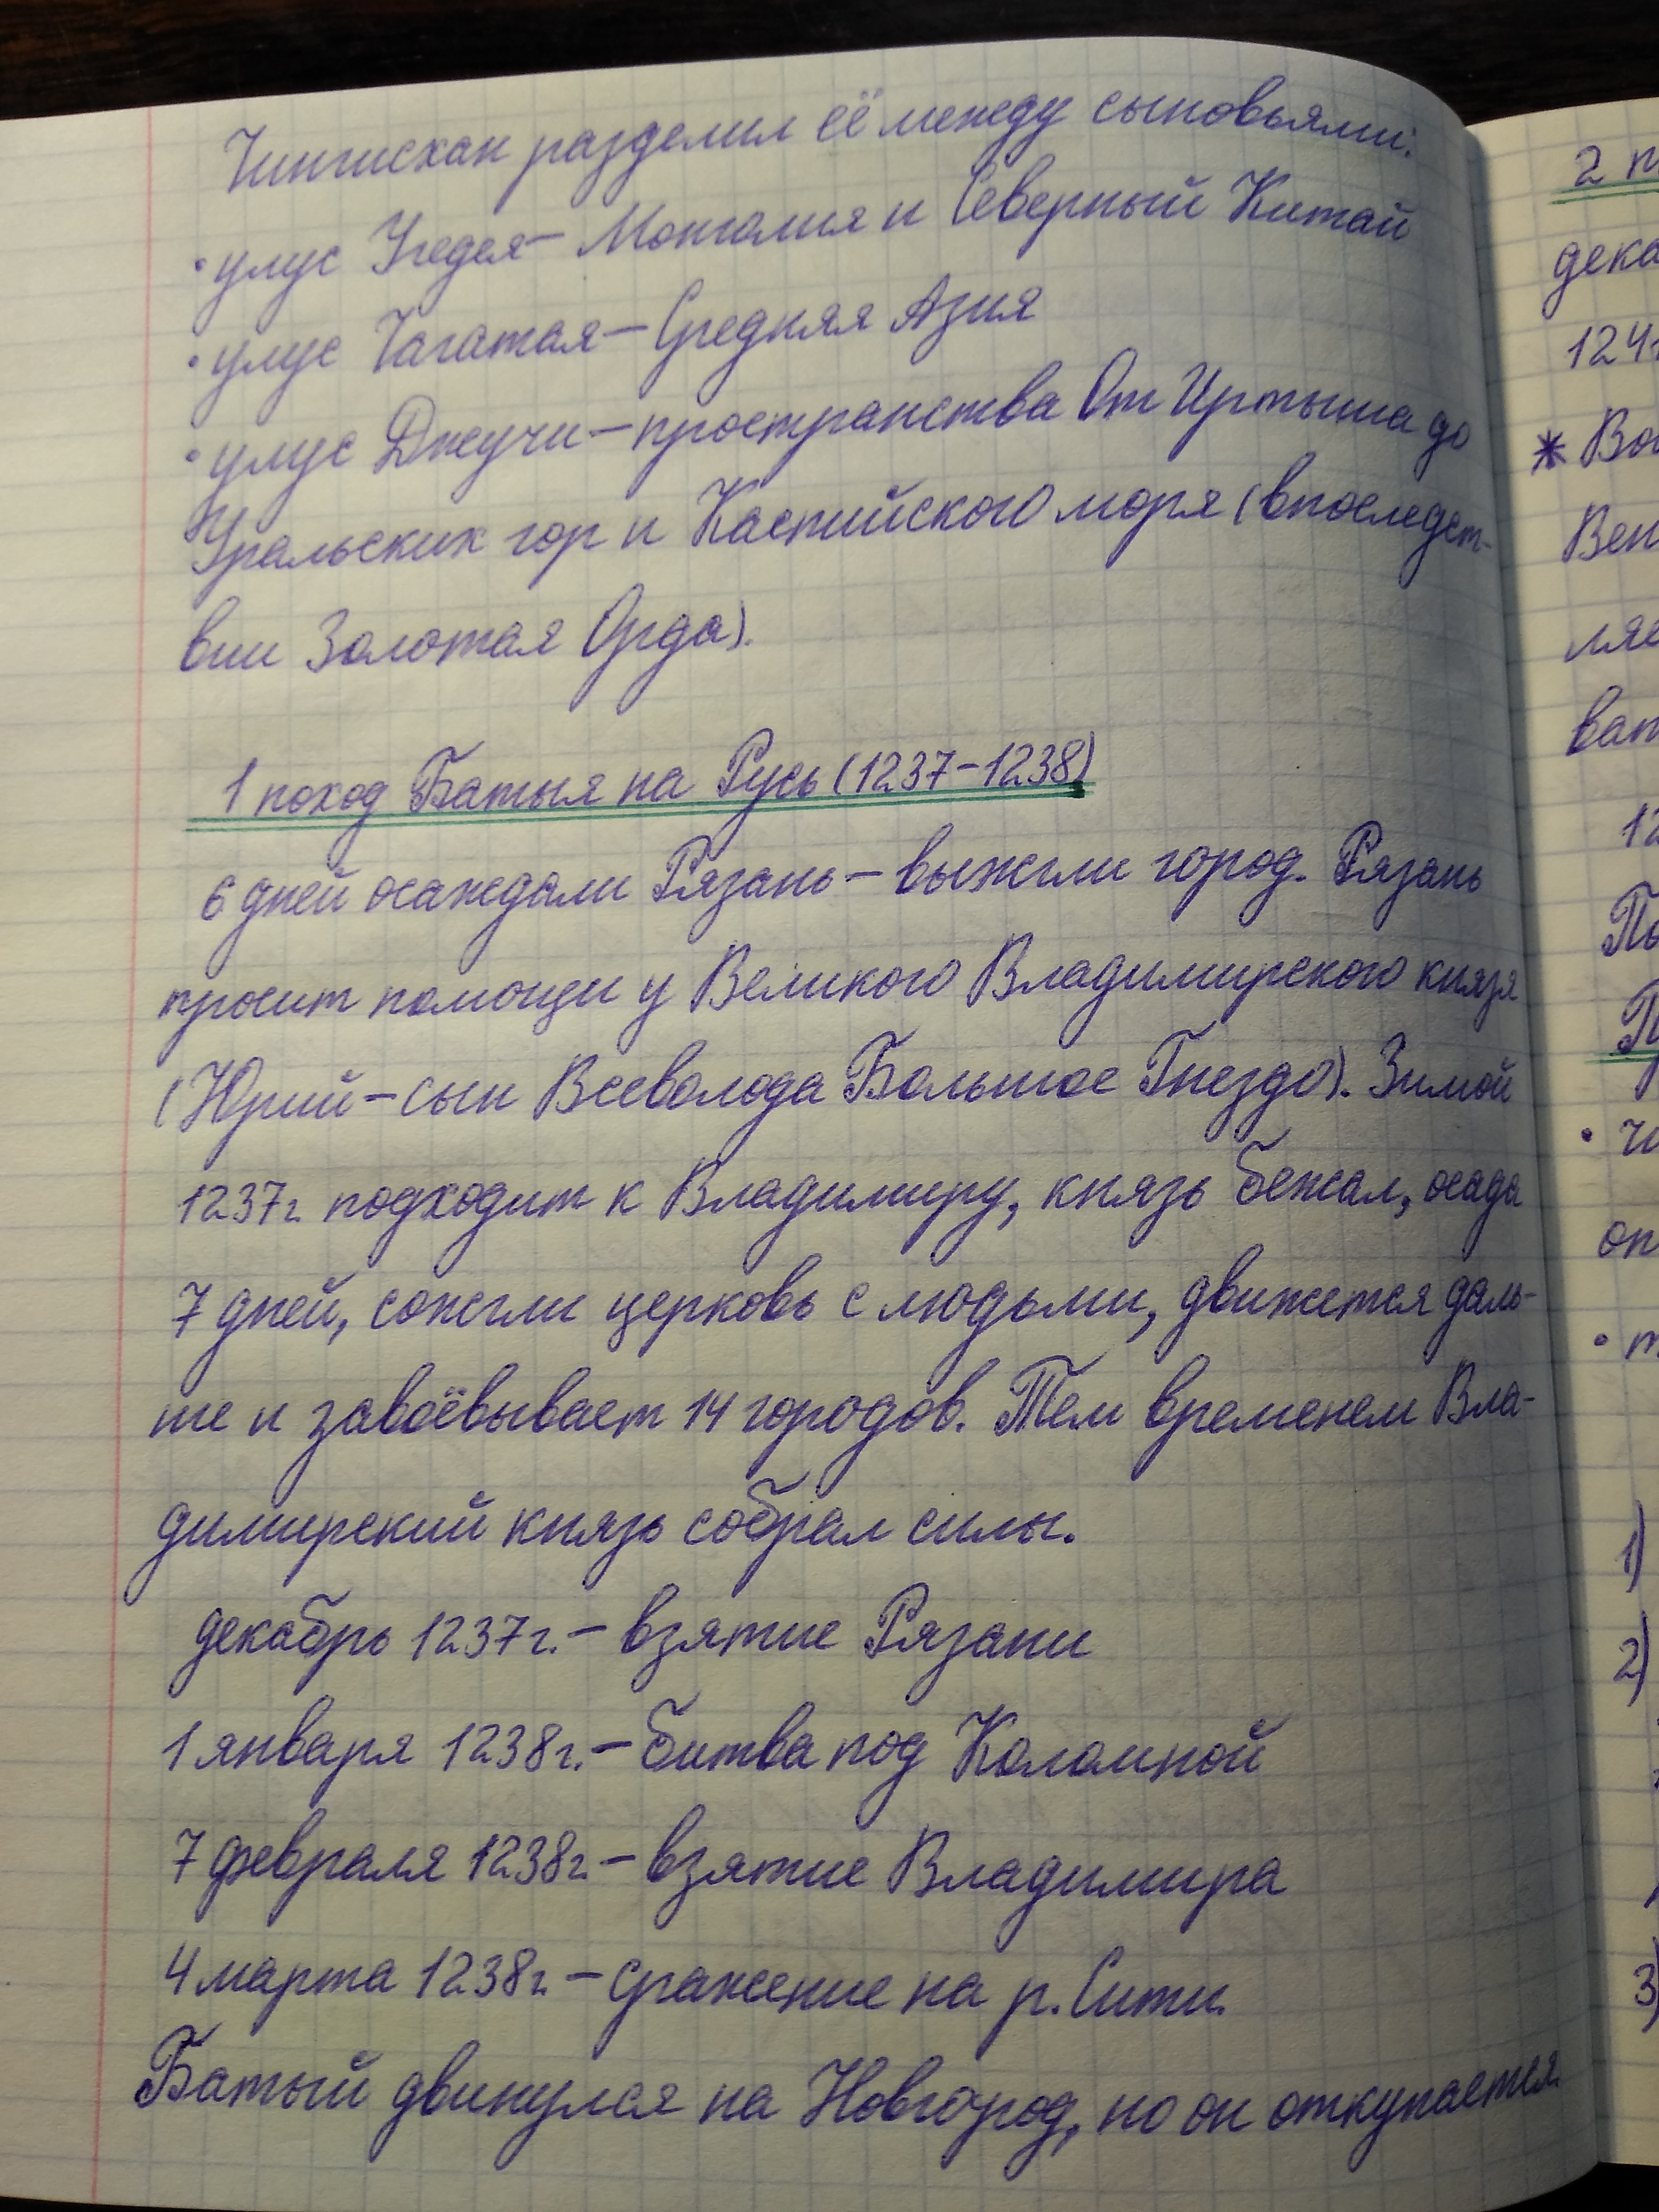 Чингисхан разделил её между сыновьями:
• улус Угедея – Монголия и Северный Китай
• улус Чагатая – Средняя Азия
• улус Джучи – пространства От Иртыша до
Уральских гор и Каспийского моря (впоследст-
вии Золотая Орда).
1 поход Батыя на Русь (1237-1238)
6 дней осаждали Рязань – выжгли город. Рязань
просит помощи у Великого Владимирского князя
(Юрий – сын Всеволода Большое Гнездо). Зимой
1237г. подходит к Владимиру, князь бежал, осада
7 дней, сожгли церковь с людьми, движется даль-
ше и завоёвывает 14 городов. Тем временем Вла-
димирский князь собрал силы.
декабрь 1237г. – взятие Рязани
1 января 1238г. – битва под Коломной
7 февраля 1238г. – взятие Владимира
4 марта 1238г. – сражение на р. Сити.
Батый двинулся на Новгород, но он откупается.
2
дека
124
* Во
Вен
ляе
ват
12
По
• чи
оп
• т
1)
2)
3)